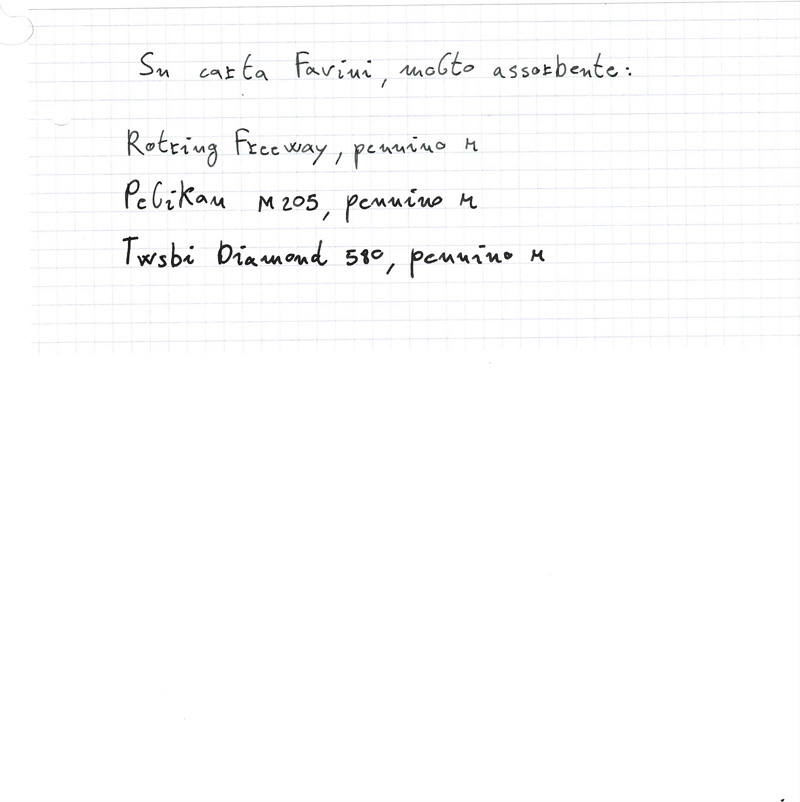 Su carta Favini, molto assorbente:
Rotring Freeway, pennino M
Pelikan M205, pennino M
Twsbi Diamond 580, pennino M